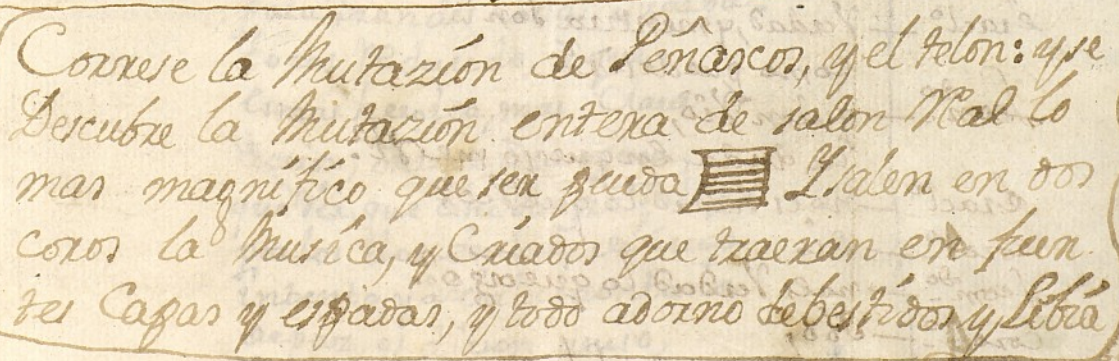 Correse la Mutazíon de Peñascos, y el telon: y se
Descubre la Mutazíon entera de salon Real lo
mas magnifico que ser pueda Y salen en dos
coros la Musica, y Criados que traeran en fuen
tes Capas y espadas, y todo adorno de bestidos y Libréa